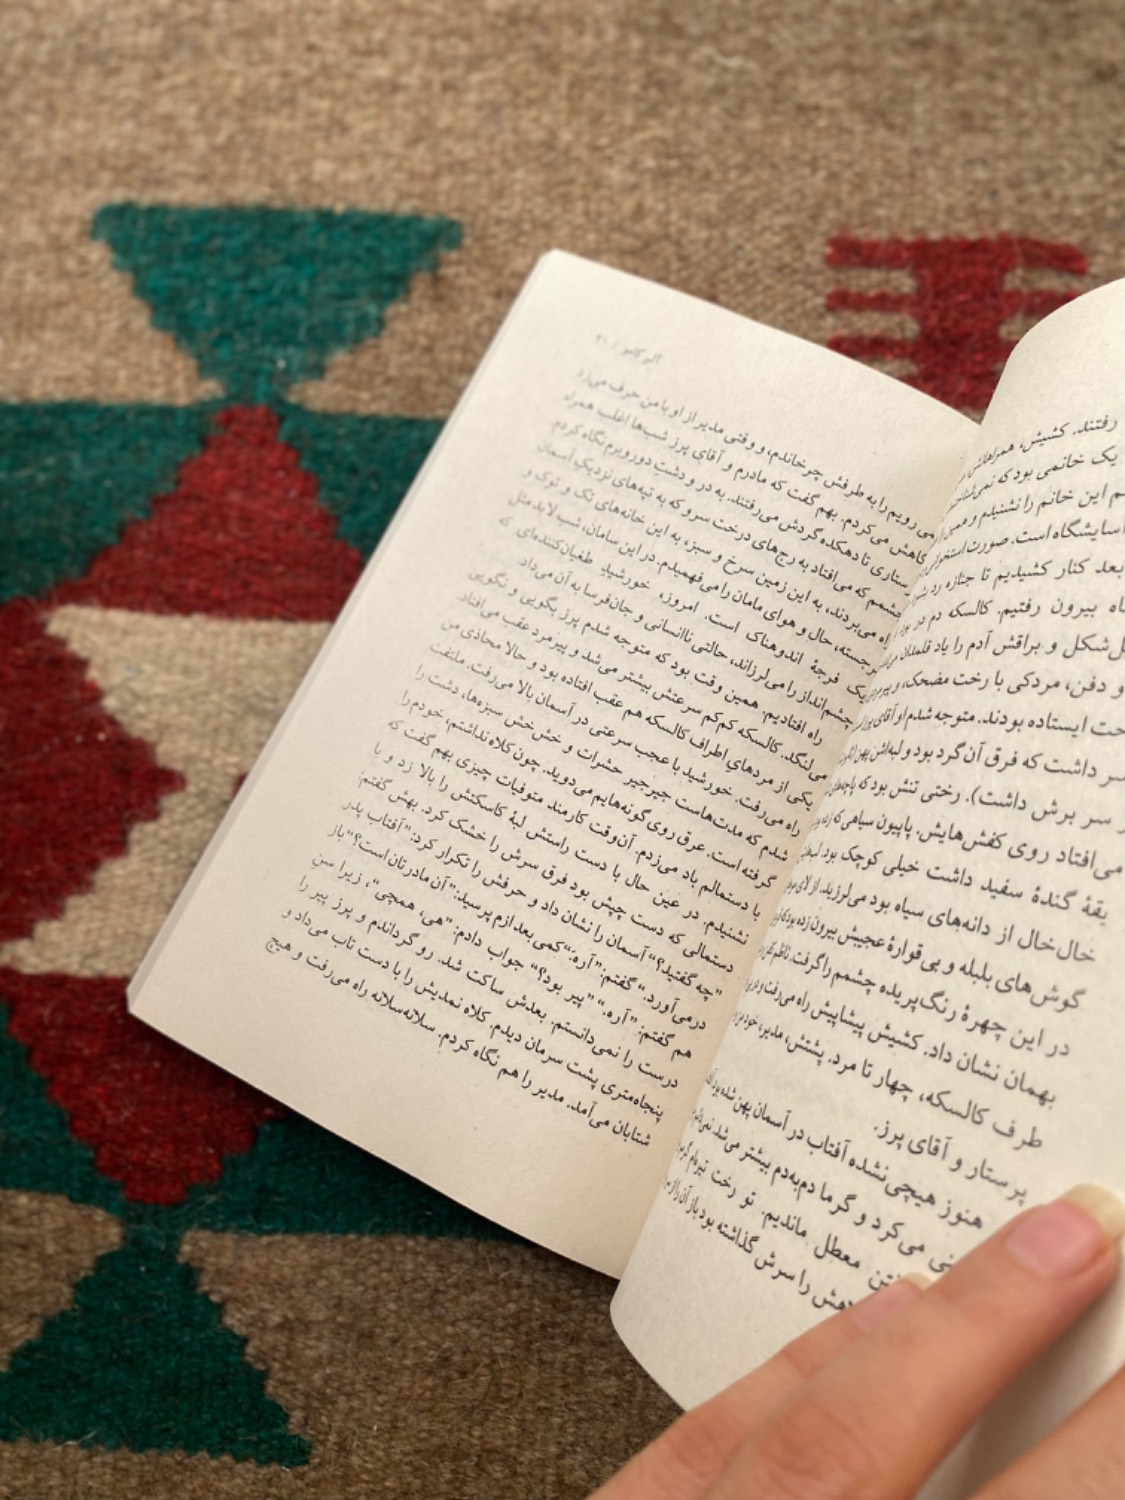 رفتند. کشیش، همراهانش
یک خانمی بود که نمی‌شناختمش
این خانم را نشنیدم و
آسایشگاه است. صورت استخوانی
بعد کنار کشیدیم تا جنازه رد شود
بیرون رفتیم. کالسکه دم در بود.
شکل و براقش آدم را یاد قلمدان
و دفن، مردکی با رخت مضحک، و پیرمردی
ایستاده بودند. متوجه شدم او آقای پرز
سر داشت که فرق آن گرد بود و لبه‌اش پهن
سر برش داشت). رختی تنش بود که پاچه‌های
می‌افتاد روی کفش‌هایش. پاپیون سیاهی که زده بود
یقهٔ گندهٔ سفید داشت خیلی کوچک بود. لب‌هایش
خال‌خال از دانه‌های سیاه بود می‌لرزید. از لای
گوش‌های بلبله و بی‌قوارهٔ عجیبش بیرون زده بود که
در این چهرهٔ رنگ‌پریده چشمم را گرفت. ناظم
بهمان نشان داد. کشیش پیشاپیش راه می‌رفت و
طرف کالسکه، چهار تا مرد. پشتش، مدیر، خودم و
پرستار و آقای پرز.
هنوز هیچی‌نشده آفتاب در آسمان پهن شده بود.
می‌کرد و گرما دم‌به‌دم بیشتر می‌شد.
معطل ماندیم. تو رخت تیره‌ام
را سرش گذاشته بود باز آن را از
آلبر کامو / ۲۱
رویم را به طرفش چرخاندم، و وقتی مدیر از او با من حرف می‌زد
نگاهش می‌کردم. بهم گفت که مادرم و آقای پرز شب‌ها اغلب همراه
پرستاری تا دهکده گردش می‌رفتند. به در و دشتِ دور و برم نگاه کردم.
چشمم که می‌افتاد به رج‌های درخت سرو که به تپه‌های نزدیکِ آسمان
راه می‌بردند، به این زمین سرخ و سبز، به این خانه‌های تک و توک و
برجسته، حال و هوای مامان را می‌فهمیدم. در این سامان، شب لابد مثل
یک فرجهٔ اندوهناک است. امروزه، خورشیدِ طغیان‌کننده‌ای که
چشم‌انداز را می‌لرزاند، حالتی ناانسانی و جان‌فرسا به آن می‌داد.
راه افتادیم. همین وقت بود که متوجه شدم پرز بگویی و نگویی
می‌لنگد. کالسکه کم‌کم سرعتش بیشتر می‌شد و پیرمرد عقب می‌افتاد.
یکی از مردهای اطراف کالسکه هم عقب افتاده بود و حالا محاذی من
راه می‌رفت. خورشید با عجب سرعتی در آسمان بالا می‌رفت. ملتفت
شدم که مدت‌هاست جیرجیر حشرات و خش‌خش سبزه‌ها، دشت را
گرفته است. عرق روی گونه‌هایم می‌دوید. چون کلاه نداشتم، خودم را
با دستمالم باد می‌زدم. آن‌وقت کارمند متوفیات چیزی بهم گفت که
نشنیدم. در عین حال با دست راستش لبهٔ کاسکتش را بالا زد و با
دستمالی که دست چپش بود فرق سرش را خشک کرد. بهش گفتم:
"چه گفتید؟" آسمان را نشان داد و حرفش را تکرار کرد: "آفتاب پدر
درمی‌آورد." گفتم: "آره." کمی بعد ازم پرسید: "آن مادرتان است؟" باز
هم گفتم: "آره." "پیر بود؟" جواب دادم: "هی، همچی"، زیرا سن
درست را نمی‌دانستم. بعدش ساکت شد. رو گرداندم و پرز پیر را
پنجاه‌متری پشت سرمان دیدم. کلاه نمدیش را با دست تاب می‌داد و
شتابان می‌آمد. مدیر را هم نگاه کردم. سلانه‌سلانه راه می‌رفت و هیچ